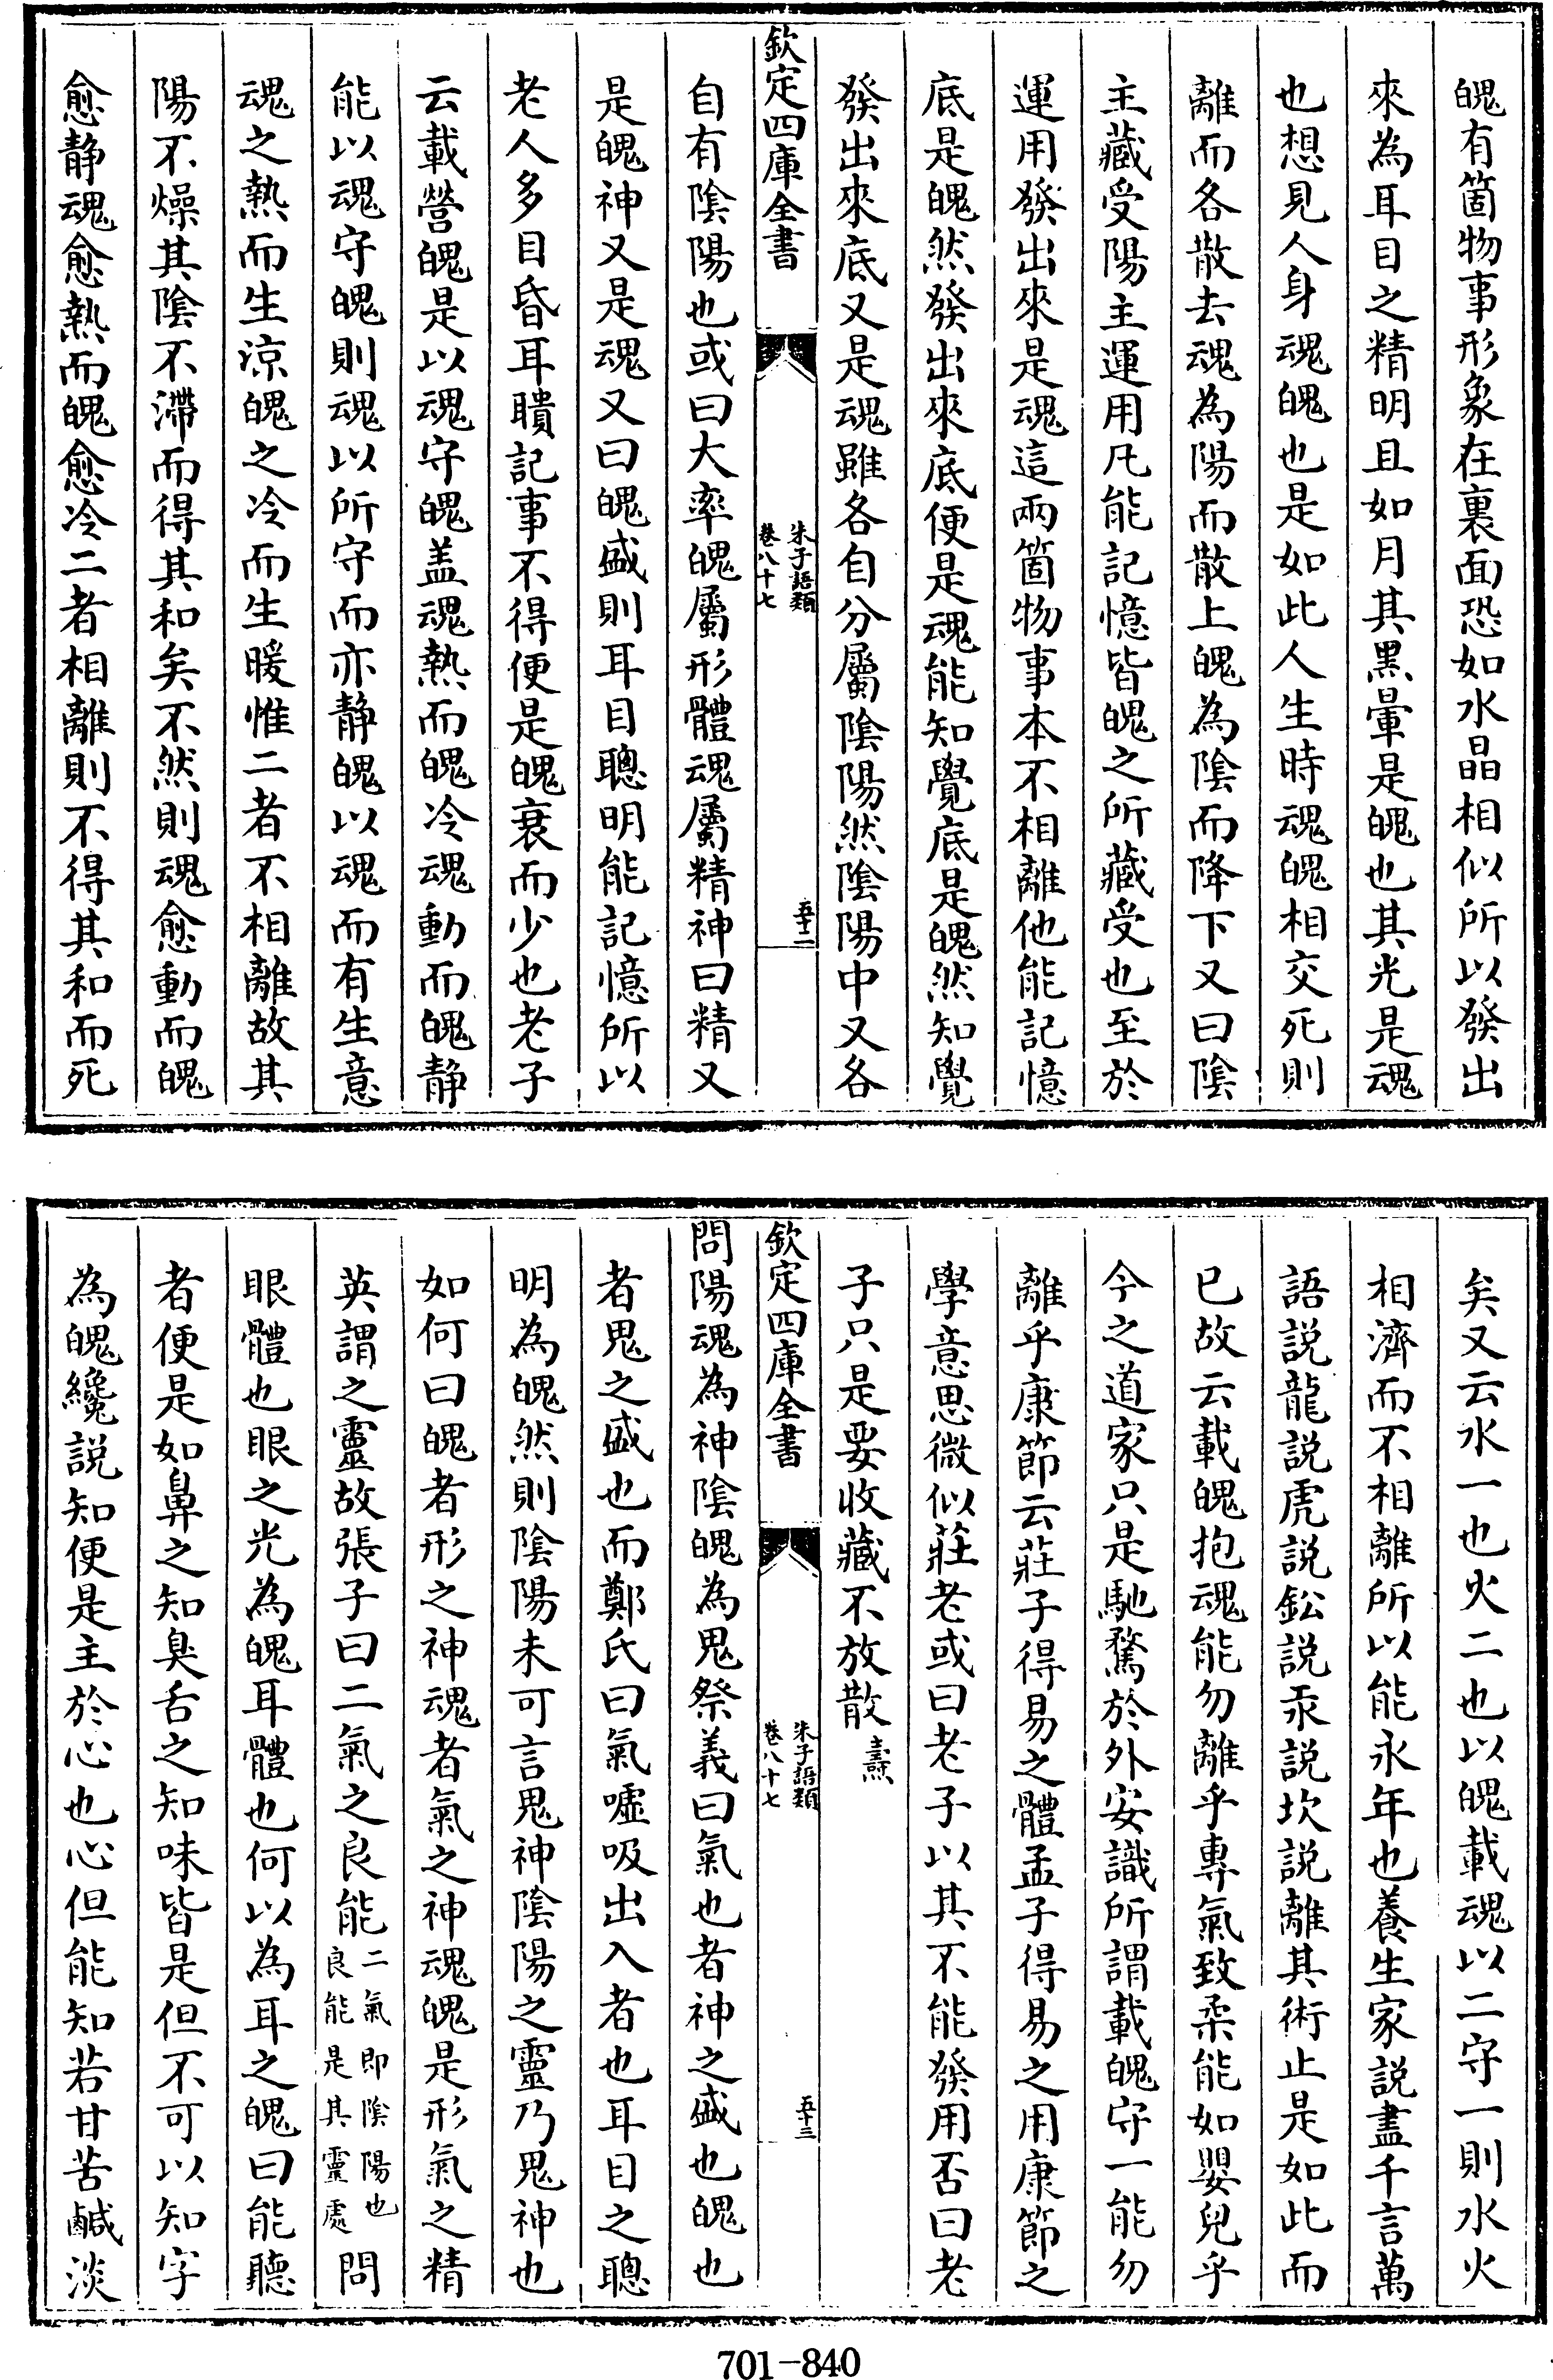 魄有箇物事形象在裏面恐如水晶相似所以發出
來為耳目之精明且如月其黑暈是魄也其光是魂
也想見人身魂魄也是如此人生時魂魄相交死則
離而各散去魂為陽而散上魄為陰而降下又曰陰
主藏受陽主運用凡能記憶皆魄之所藏受也至於
運用發出來是魂這兩箇物事本不相離他能記憶
底是魄然發出來底便是魂能知覺底是魄然知覺
發出來底又是魂雖各自分屬陰陽然陰陽中又各
欽定四庫全書
朱子語類
卷八十七
五十二
自有陰陽也或曰大率魄屬形體魂屬精神曰精又
是魄神又是魂又曰魄盛則耳目聰明能記憶所以
老人多目昏耳聵記事不得便是魄衰而少也老子
云載營魄是以魂守魄盖魂熱而魄冷魂動而魄静
能以魂守魄則魂以所守而亦静魄以魂而有生意
魂之熱而生涼魄之冷而生暖惟二者不相離故其
陽不燥其陰不滯而得其和矣不然則魂愈動而魄
愈静魂愈熱而魄愈冷二者相離則不得其和而死
矣又云水一也火二也以魄載魂以二守一則水火
相濟而不相離所以能永年也養生家説盡千言萬
語説龍説虎説鈆説汞説坎説離其術止是如此而
已故云載魄抱魂能勿離乎專氣致柔能如嬰兒乎
今之道家只是馳騖於外安識所謂載魄守一能勿
離乎康節云莊子得易之體孟子得易之用康節之
學意思微似莊老或曰老子以其不能發用否曰老
子只是要收藏不放散燾
欽定四庫全書
朱子語類
卷八十七
五十三
問陽魂為神陰魄為鬼祭義曰氣也者神之盛也魄也
者鬼之盛也而鄭氏曰氣噓吸出入者也耳目之聰
明為魄然則陰陽未可言鬼神陰陽之靈乃鬼神也
如何曰魄者形之神魂者氣之神魂魄是形氣之精
英謂之靈故張子曰二氣之良能二氣即陰陽也良能是其靈處問
眼體也眼之光為魄耳體也何以為耳之魄曰能聽
者便是如鼻之知臭舌之知味皆是但不可以知字
為魄纔説知便是主於心也心但能知若甘苦鹹淡
701-840